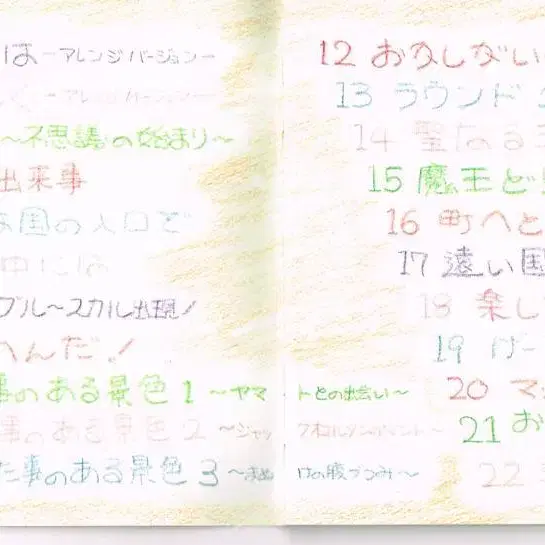 は—アレンジバージョン—
—アレンジバージョン—
〜不思議の始まり〜
出来事
国の入口で
中には
ブル〜スカル出現!
へんだ!
事のある景色1〜ヤマ
事のある景色2〜ジャッ
た事のある景色3〜まぬ
12 おかしない
13 ラウンド
14 聖なる
15 魔王と
16 町へと
17 遠い国
18 楽し
19 ゲー
トとの出会い〜 20 マ
フォルランのイベント〜 21 お
けの腹づつみ〜 22